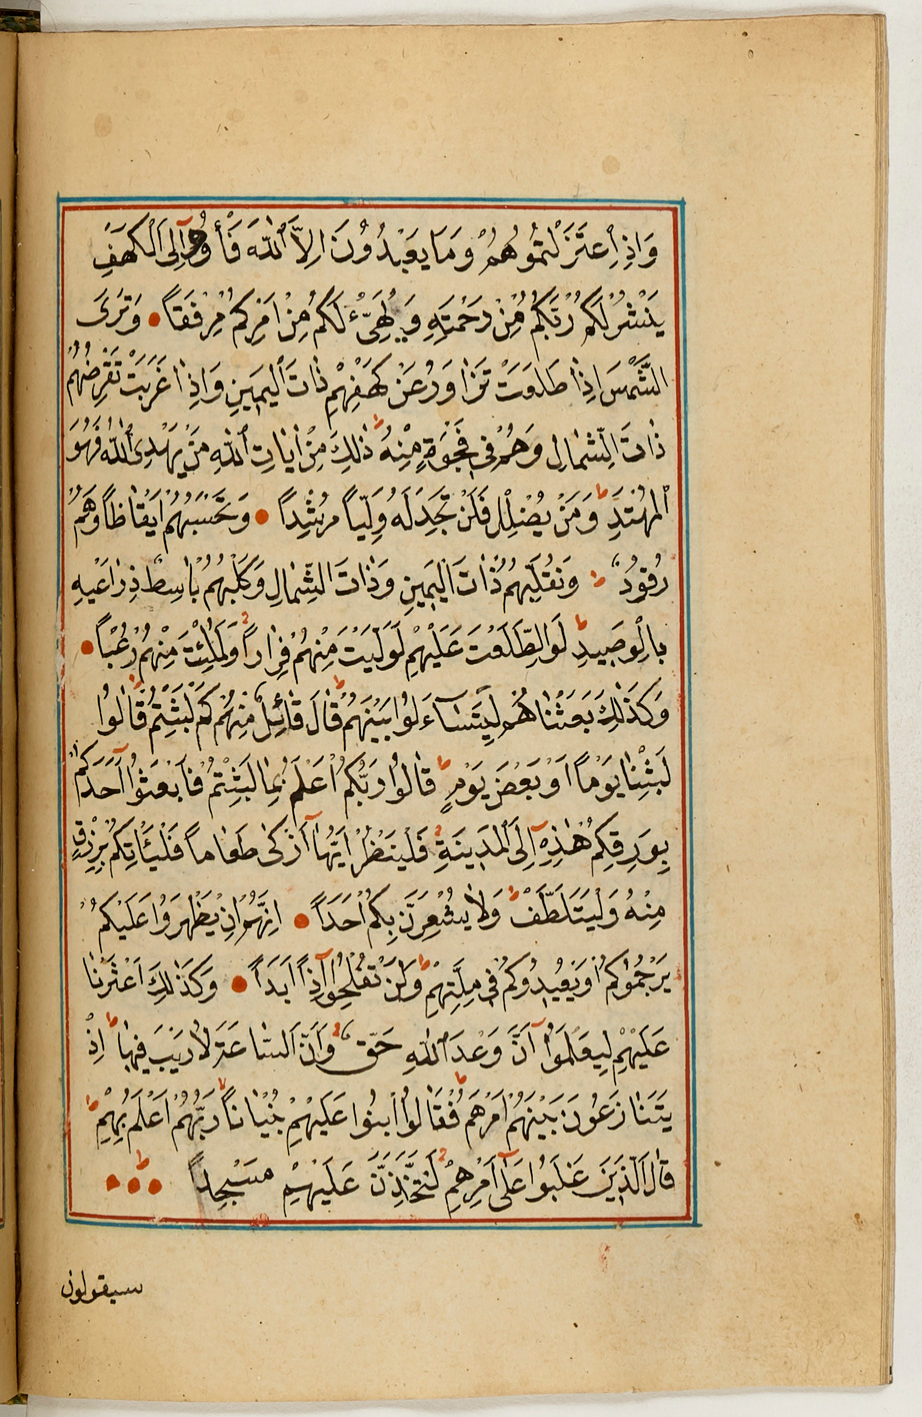 وَاِذِ اعْتَزَلْتُمُوهُمْ وَمَا يَعْبُدُونَ اِلَّا اللّٰهَ فَأْوُٓا اِلَى الْكَهْفِ
يَنْشُرْ لَكُمْ رَبُّكُمْ مِنْ رَحْمَتِهِ وَيُهَيِّئْ لَكُمْ مِنْ اَمْرِكُمْ مِرْفَقًا • وَتَرَى
الشَّمْسَ اِذَا طَلَعَتْ تَزَاوَرُ عَنْ كَهْفِهِمْ ذَاتَ الْيَمِينِ وَاِذَا غَرَبَتْ تَقْرِضُهُمْ
ذَاتَ الشِّمَالِ وَهُمْ فِى فَجْوَةٍ مِنْهُ ط ذٰلِكَ مِنْ اٰيَاتِ اللّٰهِ مَنْ يَهْدِى اللّٰهُ فَهُوَ
الْمُهْتَدِ ط وَمَنْ يُضْلِلْ فَلَنْ تَجِدَ لَهُ وَلِيًّا مُرْشِدًا • وَتَحْسَبُهُمْ اَيْقَاظًا وَهُمْ
رُقُودٌ وَنُقَلِّبُهُمْ ذَاتَ الْيَمِينِ وَذَاتَ الشِّمَالِ وَكَلْبُهُمْ بَاسِطٌ ذِرَاعَيْهِ
بِالْوَصِيدِ ط لَوِ اطَّلَعْتَ عَلَيْهِمْ لَوَلَّيْتَ مِنْهُمْ فِرَارًا وَلَمُلِئْتَ مِنْهُمْ رُعْبًا •
وَكَذٰلِكَ بَعَثْنَاهُمْ لِيَتَسَآءَلُوا بَيْنَهُمْ ط قَالَ قَائِلٌ مِنْهُمْ كَمْ لَبِثْتُمْ ط قَالُوا
لَبِثْنَا يَوْمًا اَوْ بَعْضَ يَوْمٍ ط قَالُوا رَبُّكُمْ اَعْلَمُ بِمَا لَبِثْتُمْ فَابْعَثُوٓا اَحَدَكُمْ
بِوَرِقِكُمْ هٰذِهِٓ اِلَى الْمَدِينَةِ فَلْيَنْظُرْ اَيُّهَآ اَزْكٰى طَعَامًا فَلْيَأْتِكُمْ بِرِزْقٍ
مِنْهُ وَلْيَتَلَطَّفْ ط وَلَا يُشْعِرَنَّ بِكُمْ اَحَدًا • اِنَّهُمْ اِنْ يَظْهَرُوا عَلَيْكُمْ
يَرْجُمُوكُمْ اَوْ يُعِيدُوكُمْ فِى مِلَّتِهِمْ ط وَلَنْ تُفْلِحُوٓا اِذًا اَبَدًا • وَكَذٰلِكَ اَعْثَرْنَا
عَلَيْهِمْ لِيَعْلَمُوٓا اَنَّ وَعْدَ اللّٰهِ حَقٌّ وَاَنَّ السَّاعَةَ لَا رَيْبَ فِيهَا ط اِذْ
يَتَنَازَعُونَ بَيْنَهُمْ اَمْرَهُمْ ط فَقَالُوا ابْنُوا عَلَيْهِمْ بُنْيَانًا ط رَبُّهُمْ اَعْلَمُ بِهِمْ ط
قَالَ الَّذِينَ غَلَبُوا عَلٰٓى اَمْرِهِمْ لَنَتَّخِذَنَّ عَلَيْهِمْ مَسْجِدًا •••
سيقولون